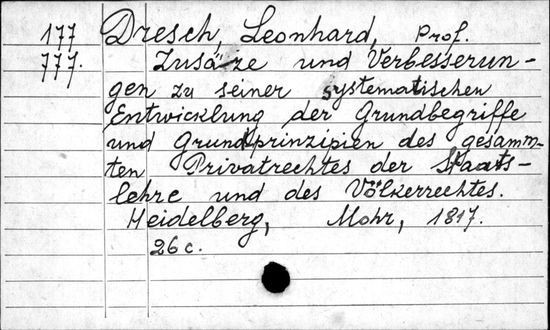 177 Dresch, Leonhard, Prof.
777. Zusäze und Verbesserun-
gen zu seiner systematischen
Entwicklung der Grundbegriffe
und Grundprinzipien des gesamm-
ten Privatrechtes der Staats-
lehre und des Völkerrechtes.
Heidelberg, Mohr, 1817.
26 c.